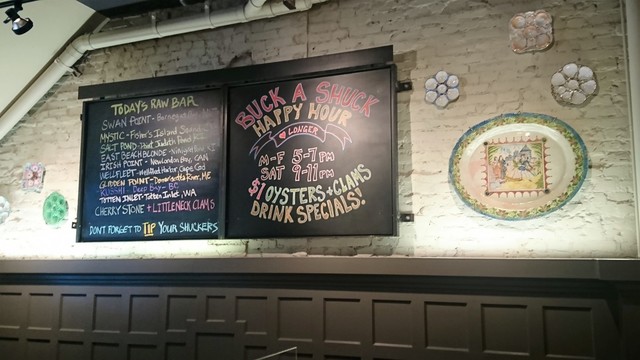 TODAY'S RAW BAR
SWAN POINT - Barnegat
MYSTIC - Fisher's Island Sound
SALT POND - Point Judith Pond
EAST BEACH BLONDE -
IRISH POINT - New London Bay, CAN
WELLFLEET - Wellfleet Harbor, Cape Cod
GLIDDEN POINT - Damariscotta River, ME
KUSSHI - Deep Bay - BC
TOTTEN INLET - Totten Inlet, WA
CHERRYSTONE + LITTLENECK CLAMS
DON'T FORGET TO TIP YOUR SHUCKERS
BUCK A SHUCK
HAPPY HOUR
LONGER
M-F 5-7 PM
SAT 9-11 PM
$1 OYSTERS + CLAMS
DRINK SPECIALS!